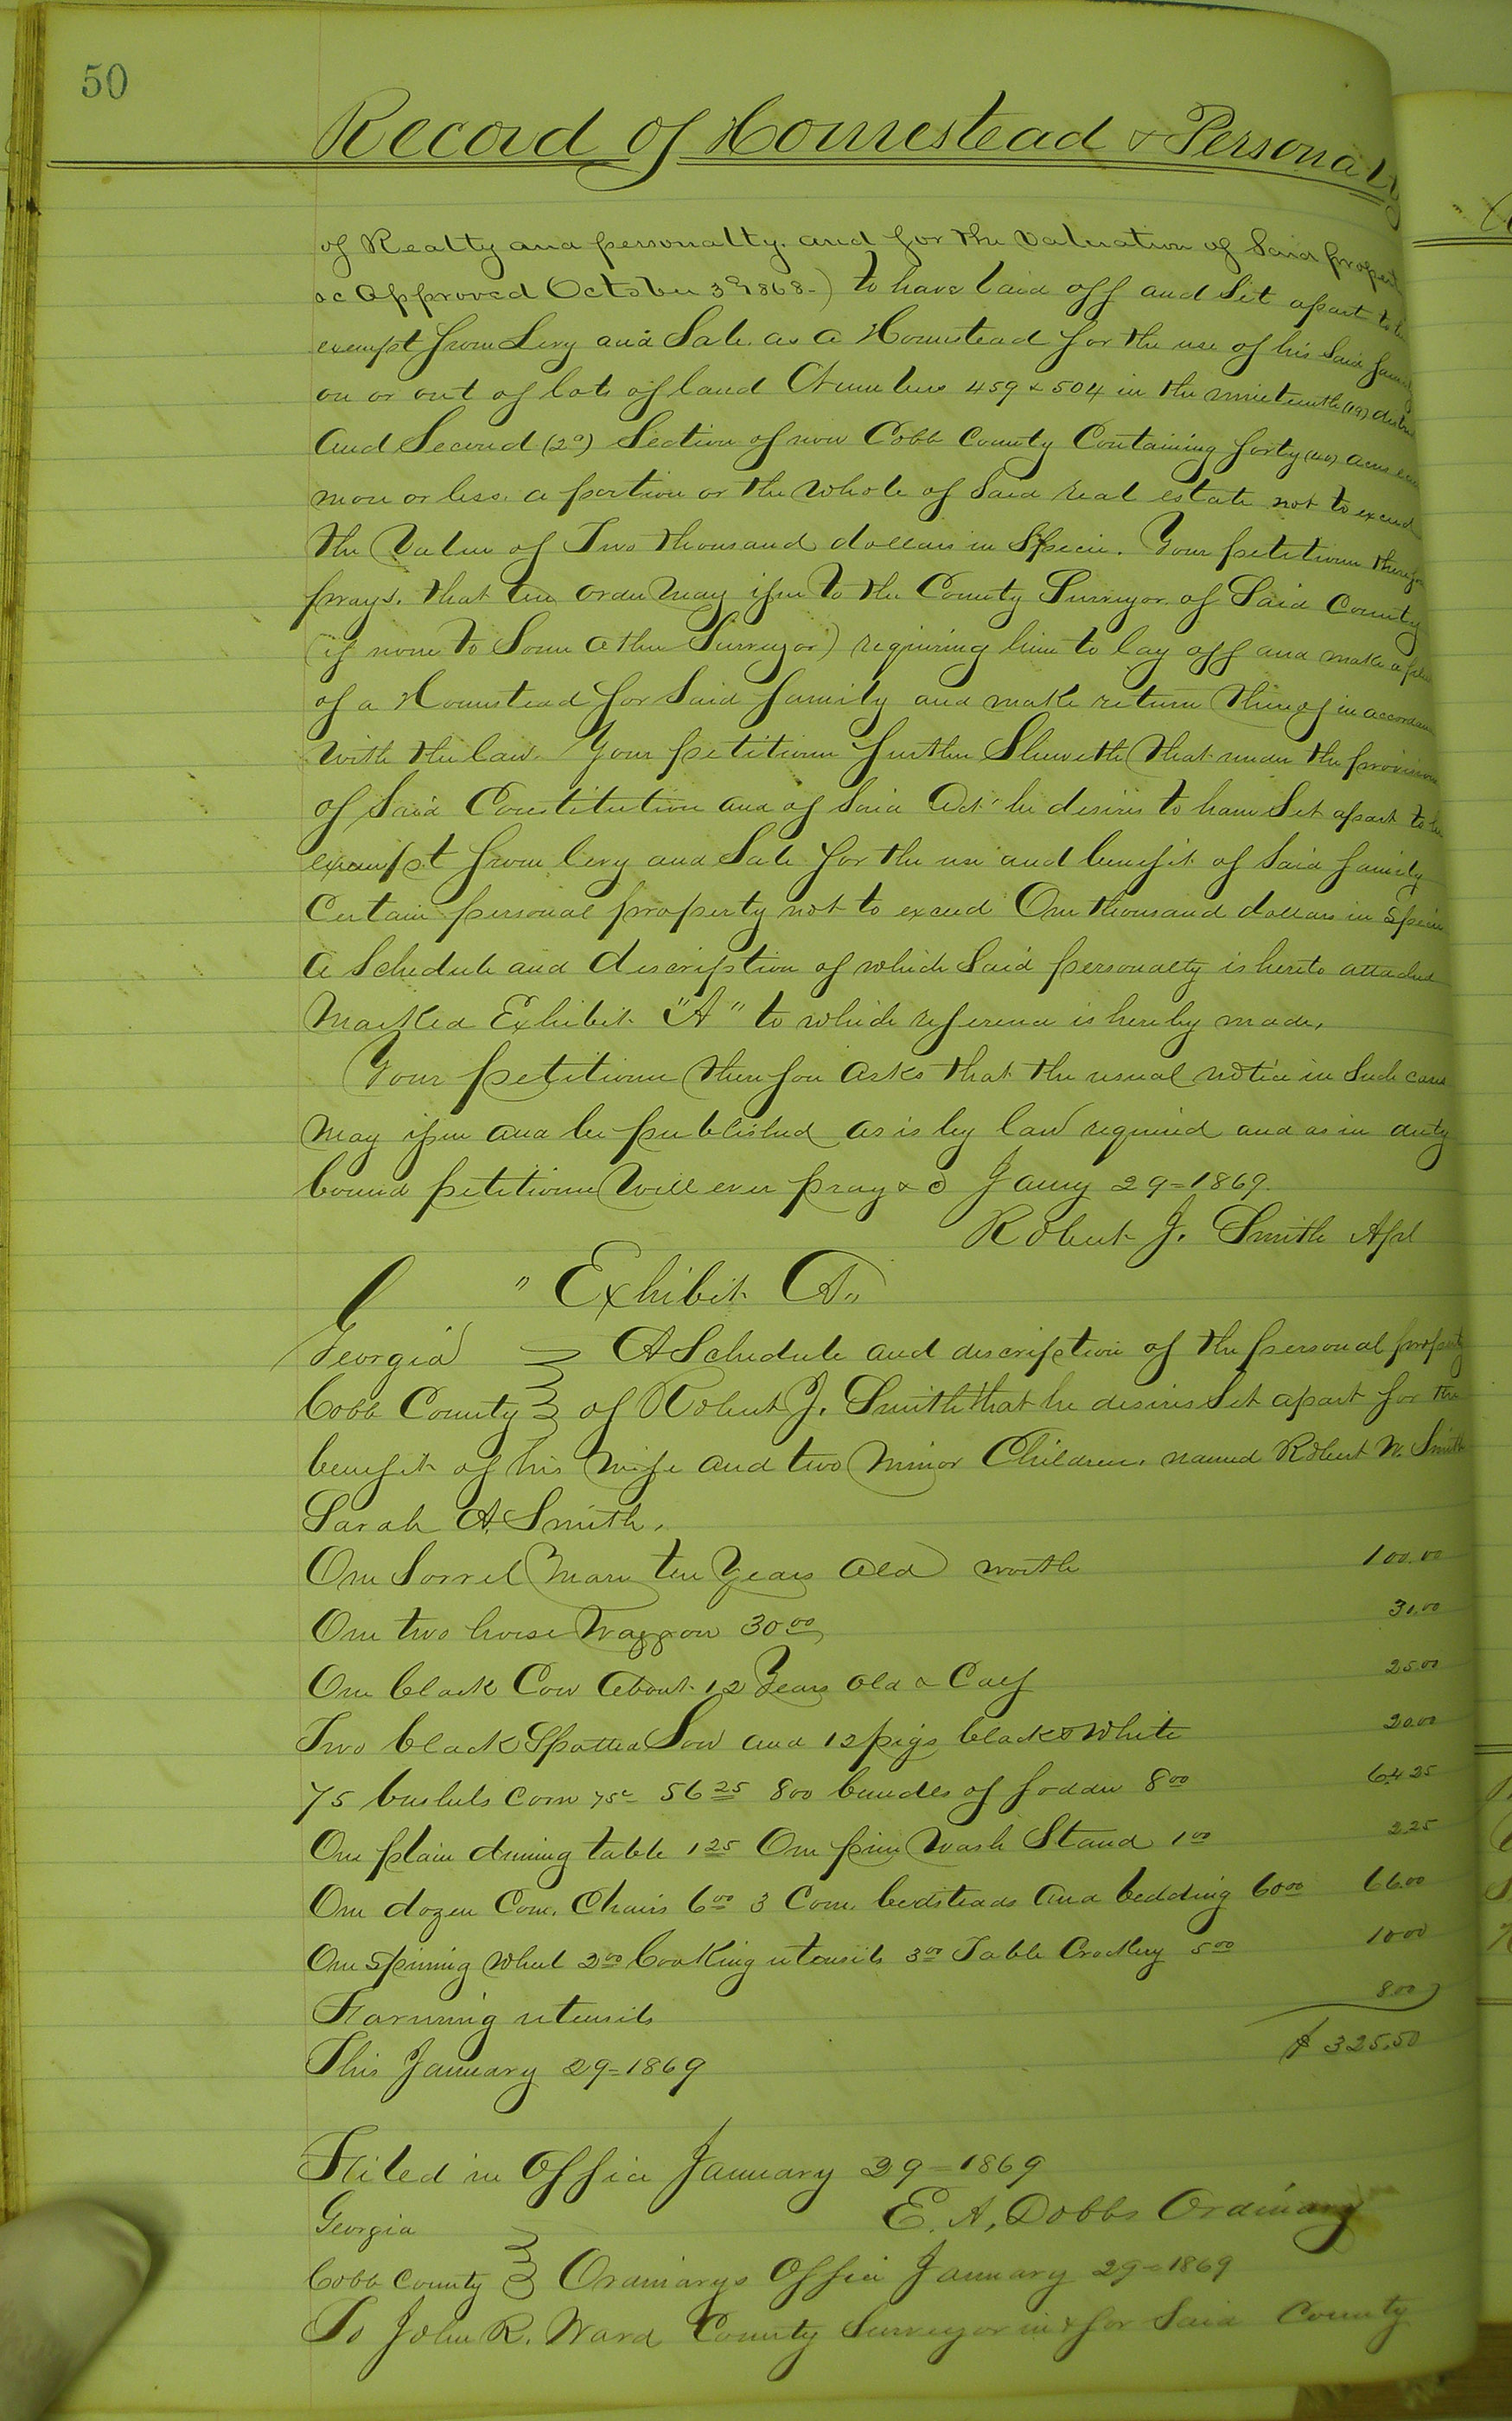 50
Record of Homestead & Personalty
of Realty and personalty. and for the Valuation of Said propert
&c Approved October 3d 1868-) to have laid off and Set apart to be
exempt from Levy and Sale. as a Homestead for the use of his Said family
on or out of lots of land Numbers 459 & 504 in the nineteenth (19) district
And Second (2d) Section of now Cobb County Containing forty (40) acres each
more or less. a portion or the whole of Said real estate not to exceed
the Value of Two thousand dollars in Specie. Your petitioner therefore
prays. that an order May issue to the County Surveyor of Said County
(if none to Some other Surveyor) requiring him to lay off and make a plat
of a Homestead for Said family and make return thereof in accordance
With the law. Your petitioner further Sheweth that under the provisions
of Said Constitution and of Said Act he desires to have Set apart to be
exempt from levy and Sale for the use and benefit of Said family
Certain personal property not to exceed One thousand dollars in Specie
A Schedule and discription of which Said personalty is hereto attached
Marked Exhibit "A" to which reference is hereby made,
Your petitioner therefore Asks that the usual notice in Such cases
May issue and be published as is by law required and as in duty
bound petitioner Will ever pray &c Jany 29=1869.
Robert J. Smith Apl
" Exhibit A"
Georgia } A Schedule and discription of the personal property
Cobb County } of Robert J. Smith that he desires Set apart for the
benefit of his Wife and two Minor Children. named Robert W. Smith
Sarah A. Smith.
One Sorrel Mare ten Years Old worth 100.00
One two horse Waggon 30 00 30.00
One black Cow About 12 Years Old & Calf 25 00
Two black Spotted Sow and 12 pigs black & White 20 00
75 bushels Corn 75c 56 25 800 bundles of fodder 8 00 64 25
One plain dining table 1 25 One pine Wash Stand 1 00 2 25
One dozen Com. Chairs 6 00 3 Com. bedsteads and bedding 60 00 66 00
One Spinning Wheel 2 00 Cooking utensils 3 00 Table Crockery 5 00 10 00
Farming utensils 8 00
This January 29=1869 $ 325.50
Filed in Office January 29=1869
E. A. Dobbs Ordinary
Georgia
Cobb County } Ordinarys Office January 29=1869
To John R. Ward County Surveyor in & for Said County